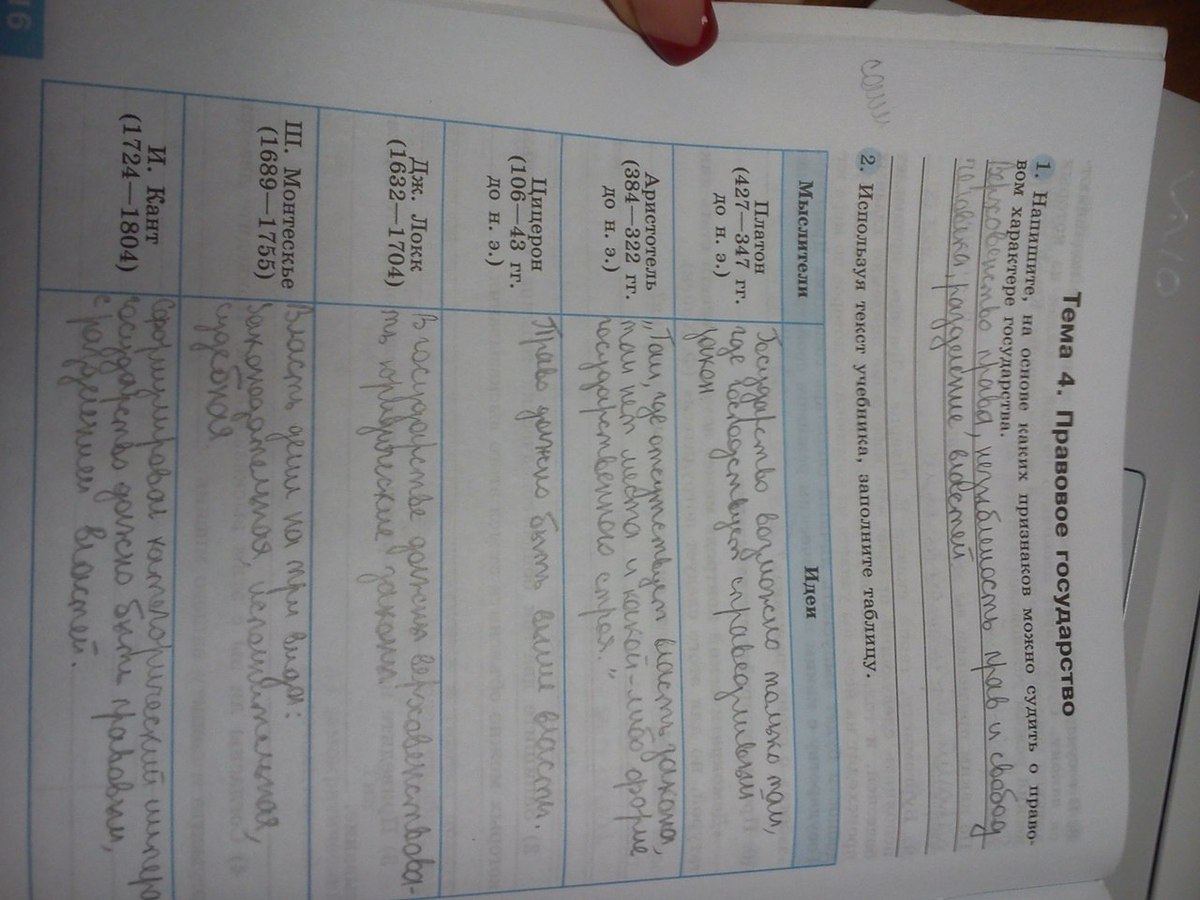 Тема 4. Правовое государство
1. Напишите, на основе каких признаков можно судить о право-
вом характере государства.
Верховенство права, незыблемость прав и свобод
человека, разделение властей
сами
2. Используя текст учебника, заполните таблицу.
Мыслители
Идеи
Платон
(427—347 гг.
до н. э.)
Государство возможно только там,
где господствует справедливый
закон
Аристотель
(384—322 гг.
до н. э.)
"Там, где отсутствует власть закона,
там нет места и какой-либо форме
государственного строя."
Цицерон
(106—43 гг.
до н. э.)
Право должно быть выше власти.
Дж. Локк
(1632—1704)
В государстве должны верховенствова-
ть юридические законы.
Ш. Монтескье
(1689—1755)
Власть делил на три вида:
Законодательная, исполнительная,
судебная
И. Кант
(1724—1804)
Сформулировал категорический импера
государство должно быть правовым,
с разделением властей.
16